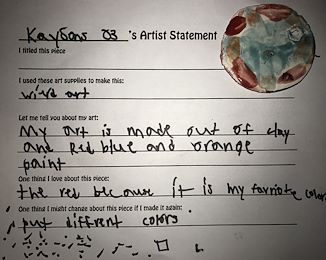 Kaydons 03 's Artist Statement
I titled this piece
I used these art supplies to make this:
wird art
Let me tell you about my art:
My art is made out of clay
and Red blue and orange
paint
One thing I love about this piece:
the red because it is my favriote color
One thing I might change about this piece if I made it again:
put diffrent colors